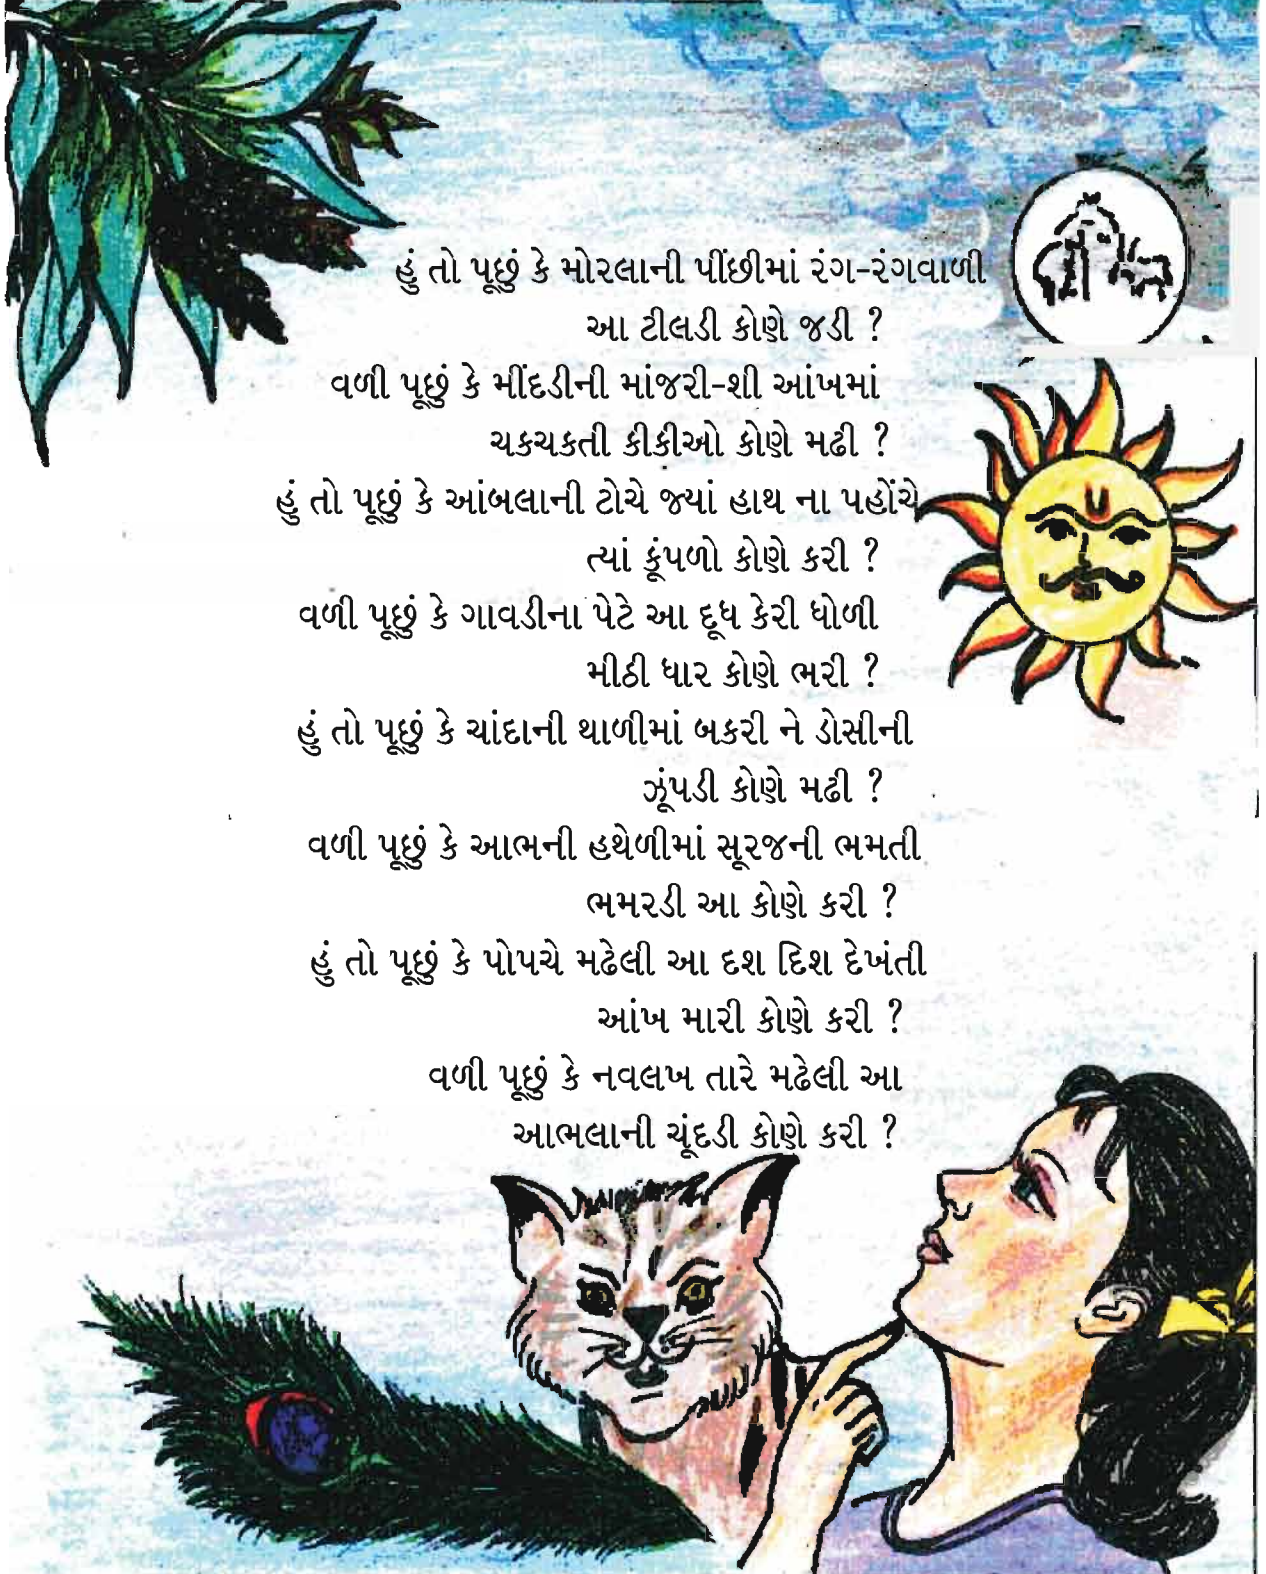 હું તો પૂછું કે મોરલાની પીંછીમાં રંગ-રંગવાળી
આ ટીલડી કોણે જડી ?
વળી પૂછું કે મીંદડીની માંજરી-શી આંખમાં
ચકચકતી કીકીઓ કોણે મઢી ?
હું તો પૂછું કે આંબલાની ટોચે જ્યાં હાથ ના પહોંચે
ત્યાં કૂંપળો કોણે કરી ?
વળી પૂછું કે ગાવડીના પેટે આ દૂધ કેરી ધોળી
મીઠી ધાર કોણે ભરી ?
હું તો પૂછું કે ચાંદાની થાળીમાં બકરી ને ડોસીની
ઝૂંપડી કોણે મઢી ?
વળી પૂછું કે આભની હથેળીમાં સૂરજની ભમતી
ભમરડી આ કોણે કરી ?
હું તો પૂછું કે પોપચે મઢેલી આ દશ દિશ દેખંતી
આંખ મારી કોણે કરી ?
વળી પૂછું કે નવલખ તારે મઢેલી આ
આભલાની ચૂંદડી કોણે કરી ?